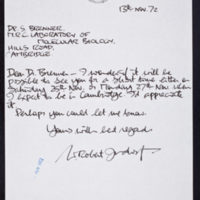 13th Nov. 72
Dr S. BRENNER,
M.R.C. LABORATORY OF
MOLECULAR BIOLOGY,
HILLS ROAD,
CAMBRIDGE
Dear Dr. Brenner – I wonder if it will be
possible to see you for a short time either on
Saturday 25th Nov. or Monday 27th Nov when
I expect to be in Cambridge. I'd appreciate
it.
Perhaps you could let me know.
Yours with best regards
Robert